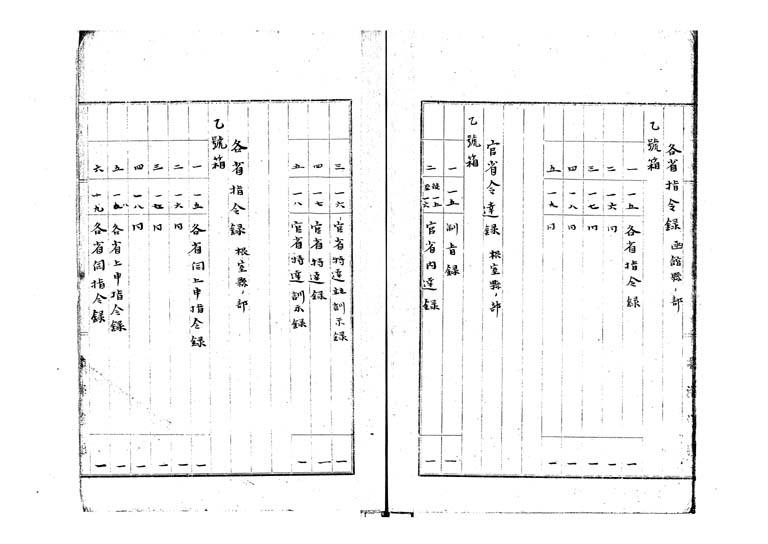 各省指令録 函館縣ノ部
乙號箱
一 一五 各省指令録 一
二 一六 〃 一
三 一七 〃 一
四 一八 〃 一
五 一九 〃 一
官省令達録 根室縣ノ部
乙號箱
一 一五 訓旨録 一
二 官省内達録 一
三 一六 官省特達並訓示録 一
四 一七 官省特達録 一
五 一八 官省特達訓示録 一
各省指令録 根室縣ノ部
乙號箱
一 一五 各省伺上申指令録 一
二 一六 〃 一
三 一七 〃 一
四 一八 〃 一
五 一九 各省上申指令録 一
六 十九 各省伺指令録 一